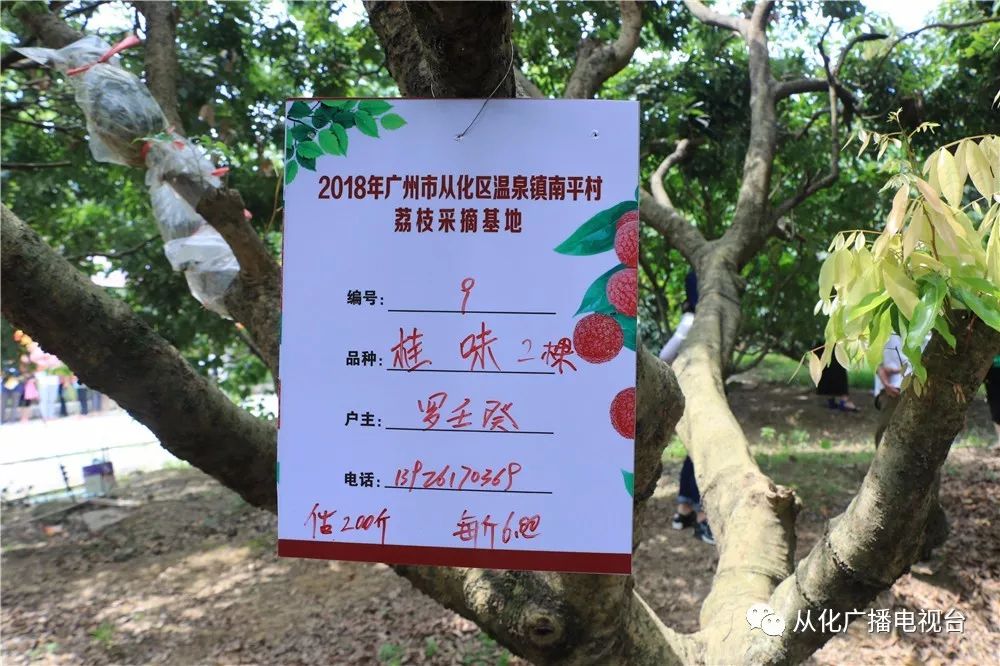 2018年广州市从化区温泉镇南平村
荔枝采摘基地
编号: 9
品种: 桂味2棵
户主: 罗壬癸
电话: 13926170369
估200斤 每斤6.
从化广播电视台